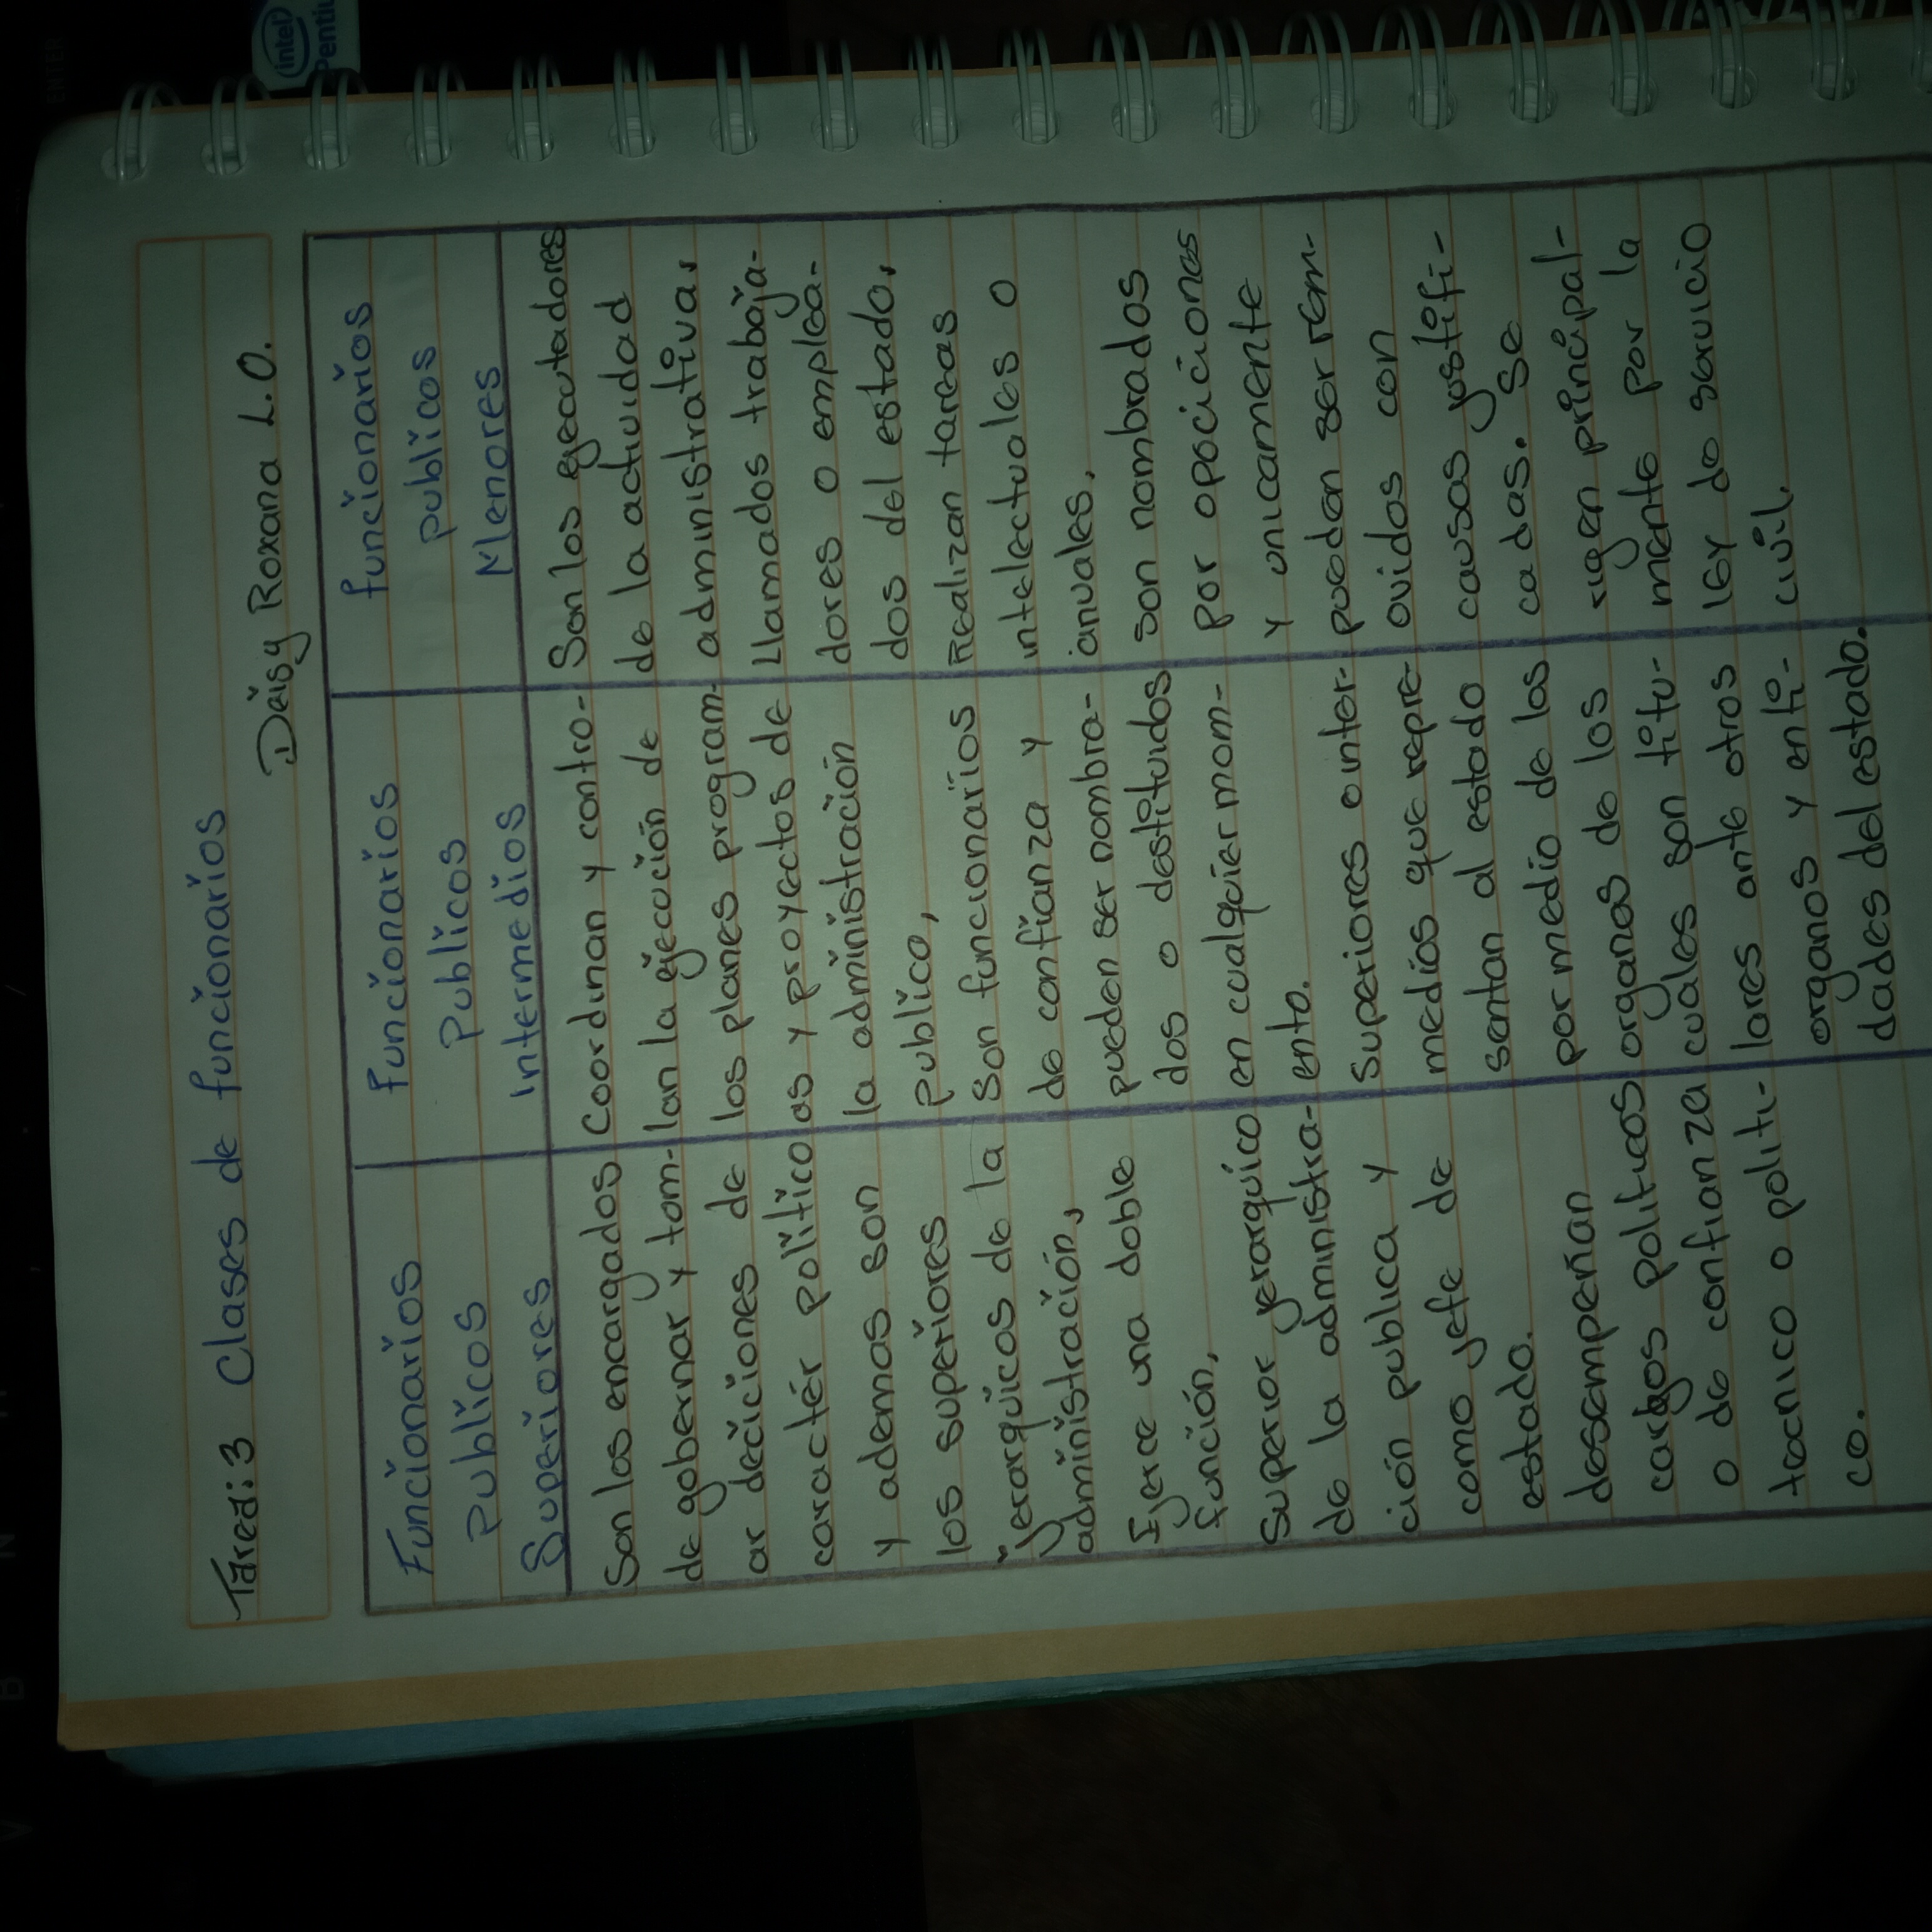 Tarea: 3 Clases de funcionarios
Daisy Roxana L.O.
Funcionarios
Publicos
Superiores
Son los encargados
de gobernar y tom-
ar deciciones de
caractér político
y ademas son
los superiores
Jerarquicos de la
administración,
Ejerce una doble
función,
Superior jerarquico
de la administra-
ción publica y
como jefe de
estado.
desempeñan
cargos politicos
o de confianza
tecnico o politi-
co.
Funcionarios
Publicos
intermedios
Coordinan y contro-
lan la ejecución de
los planes program-
as y proyectos de
la administración
publico,
Son funcionarios
de confianza y
pueden ser nombra-
dos o destituidos
en cualquier mom-
ento.
Superiores o inter-
medios que repre-
sentan al estado
por medio de los
organos de los
cuales son titu-
lares ante otros
organos y enti-
dades del estado.
funcionarios
publicos
Menores
Son los ejecutadores
de la actividad
administrativa,
Llamados trabaja-
dores o emplea-
dos del estado,
Realizan tareas
intelectuales o
anuales,
son nombrados
por opociciones
y unicamente
pueden ser rem-
ovidos con
causas justifi-
cadas. Se
rigen principal-
mente por la
ley de servicio
civil.
intel
Pentiu
ENTER
B
N
V